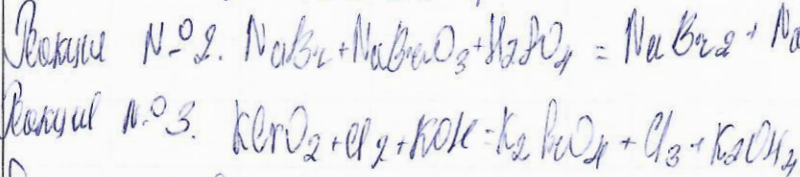 Реакция №2. NaBr+NaBrO3+H2SO4 = NaBr2+ Na
Реакция №3. KCrO2+Cl2+KOH=K2BrO4+Cl3+K2OH4